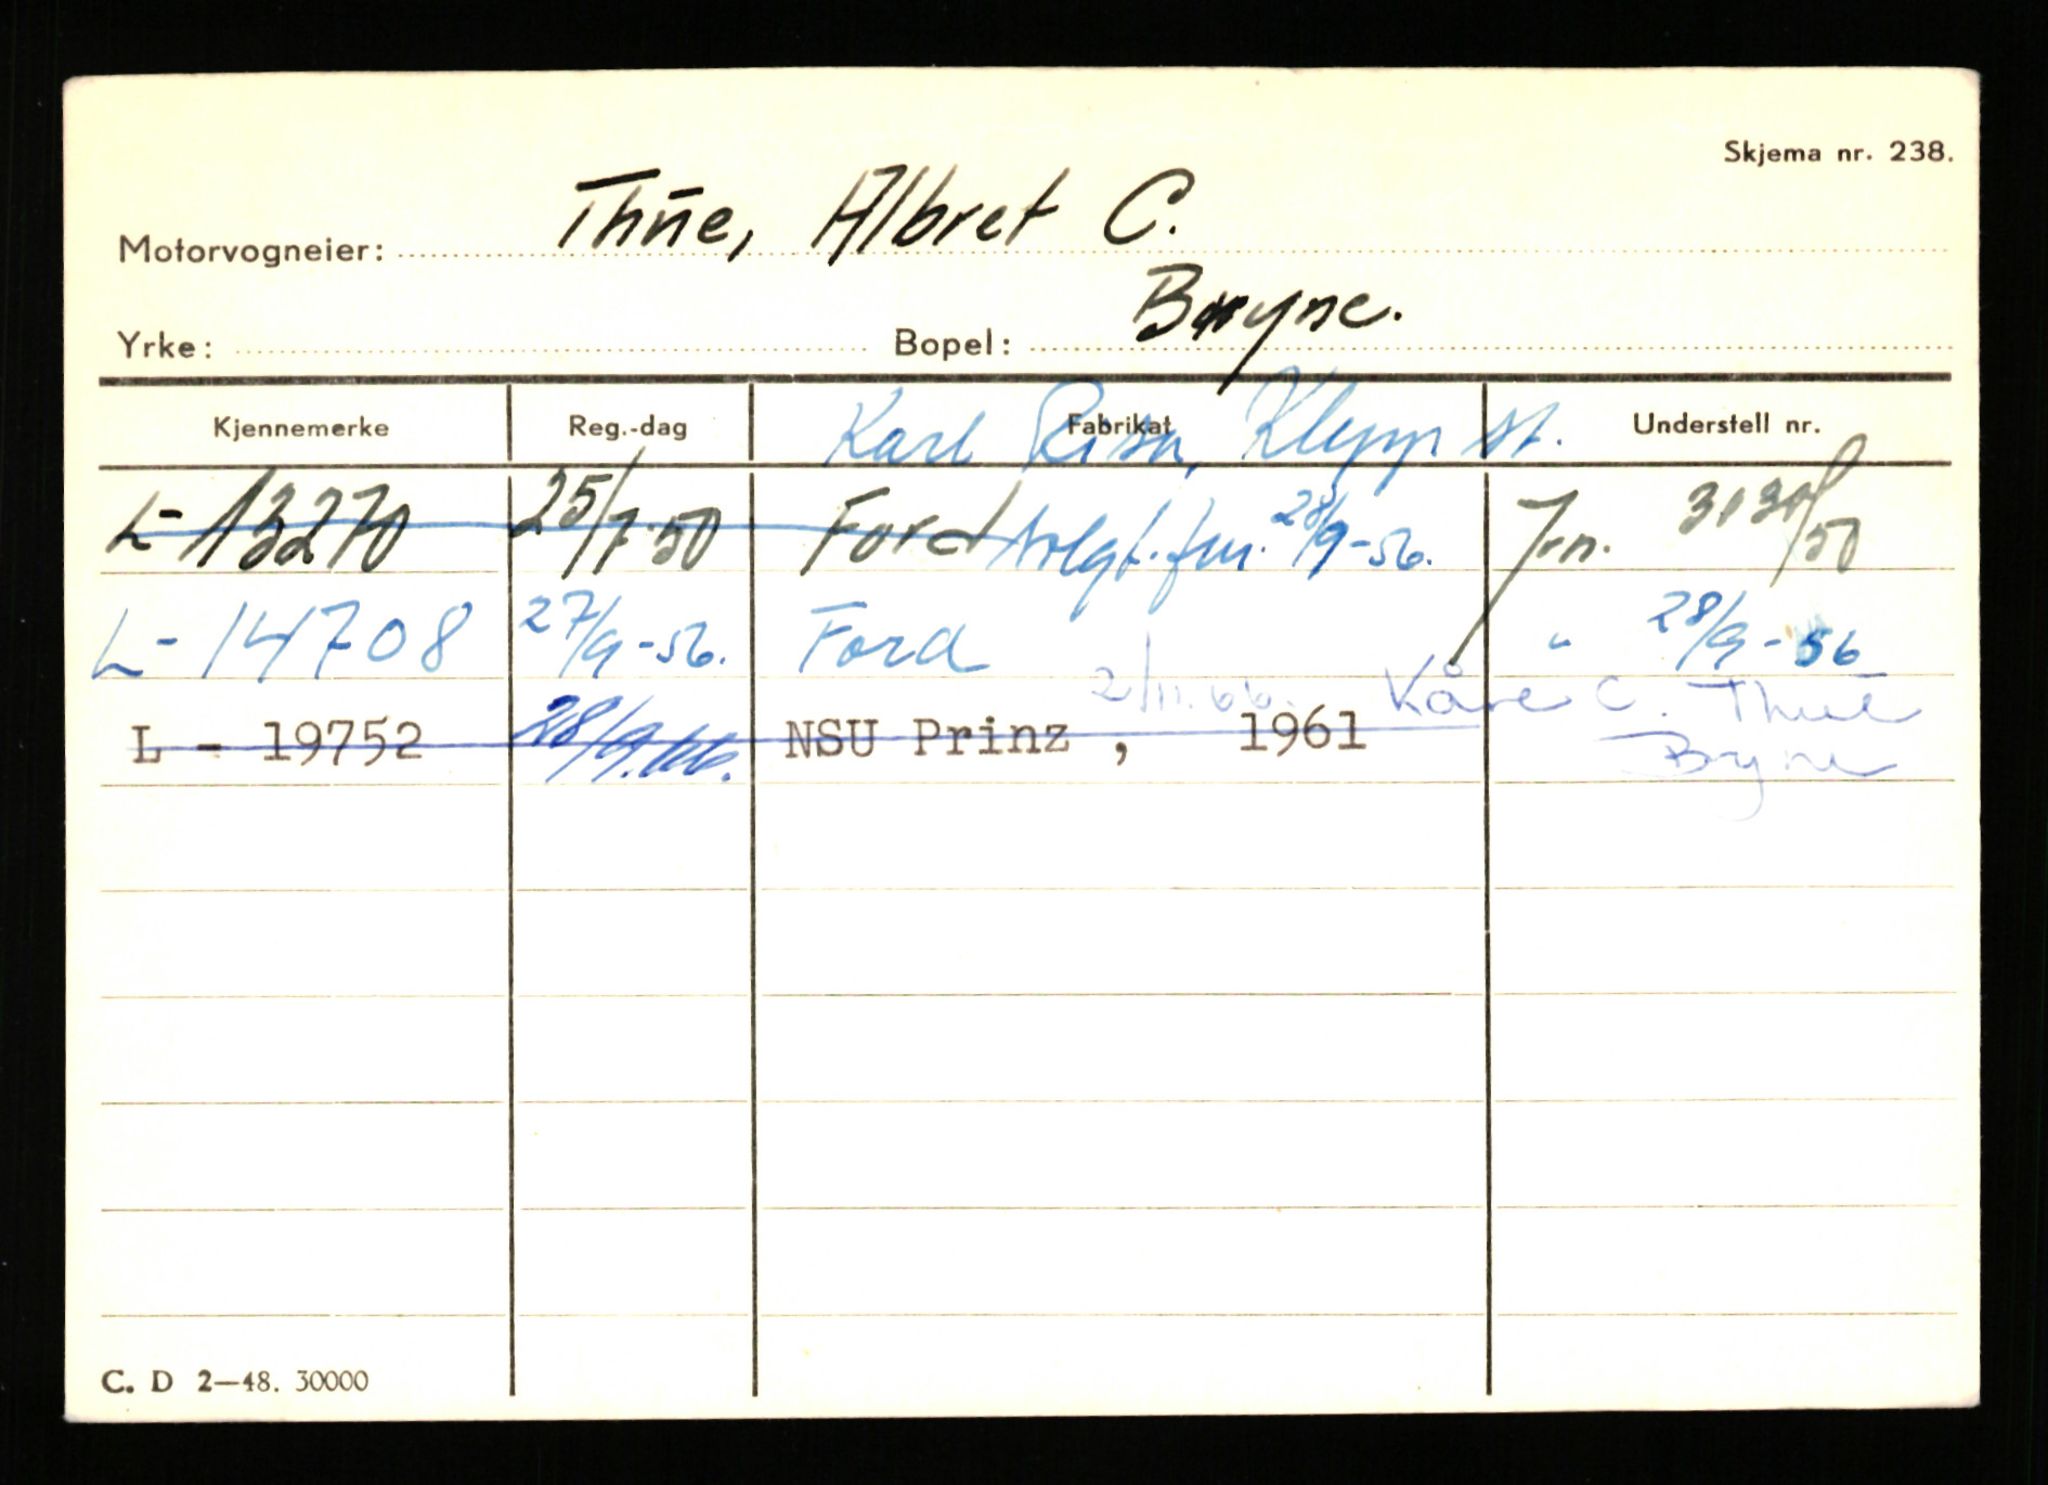 Skjema nr. 238.
Motorvogneier: Thue, Albret C.
Yrke: Bopel: Bryne.
Kjennemerke Reg.-dag Fabrikat Understell nr.
Karl Risa, Klepp st.
L- 13270 25/7-50 Ford solgt. 28/9-56. Jrn. 3130/50
L- 14708 27/9-56. Ford " 28/9-56
2/11.66. Kåre C. Thue
L - 19752 28/9.66. NSU Prinz , 1961 Bryne
C. D 2—48. 30000